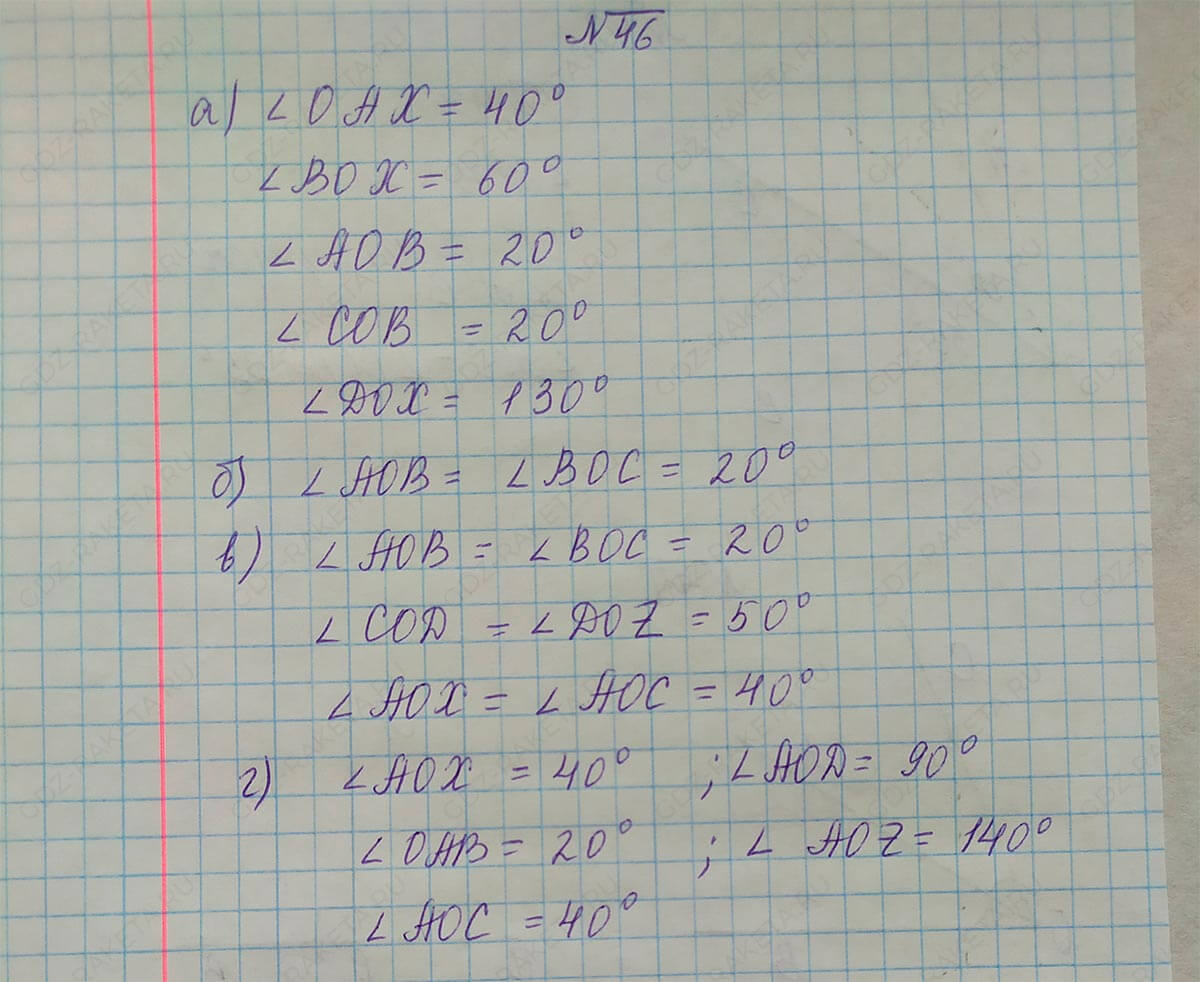 №46
а) ∠OAX = 40°
∠BOX = 60°
∠AOB = 20°
∠COB = 20°
∠DOX = 130°
б) ∠AOB = ∠BOC = 20°
в) ∠AOB = ∠BOC = 20°
∠COD = ∠DOZ = 50°
∠AOX = ∠AOC = 40°
г) ∠AOX = 40° ; ∠AOD = 90°
∠OAB = 20° ; ∠AOZ = 140°
∠AOC = 40°
GDZ-RAKETA.RU